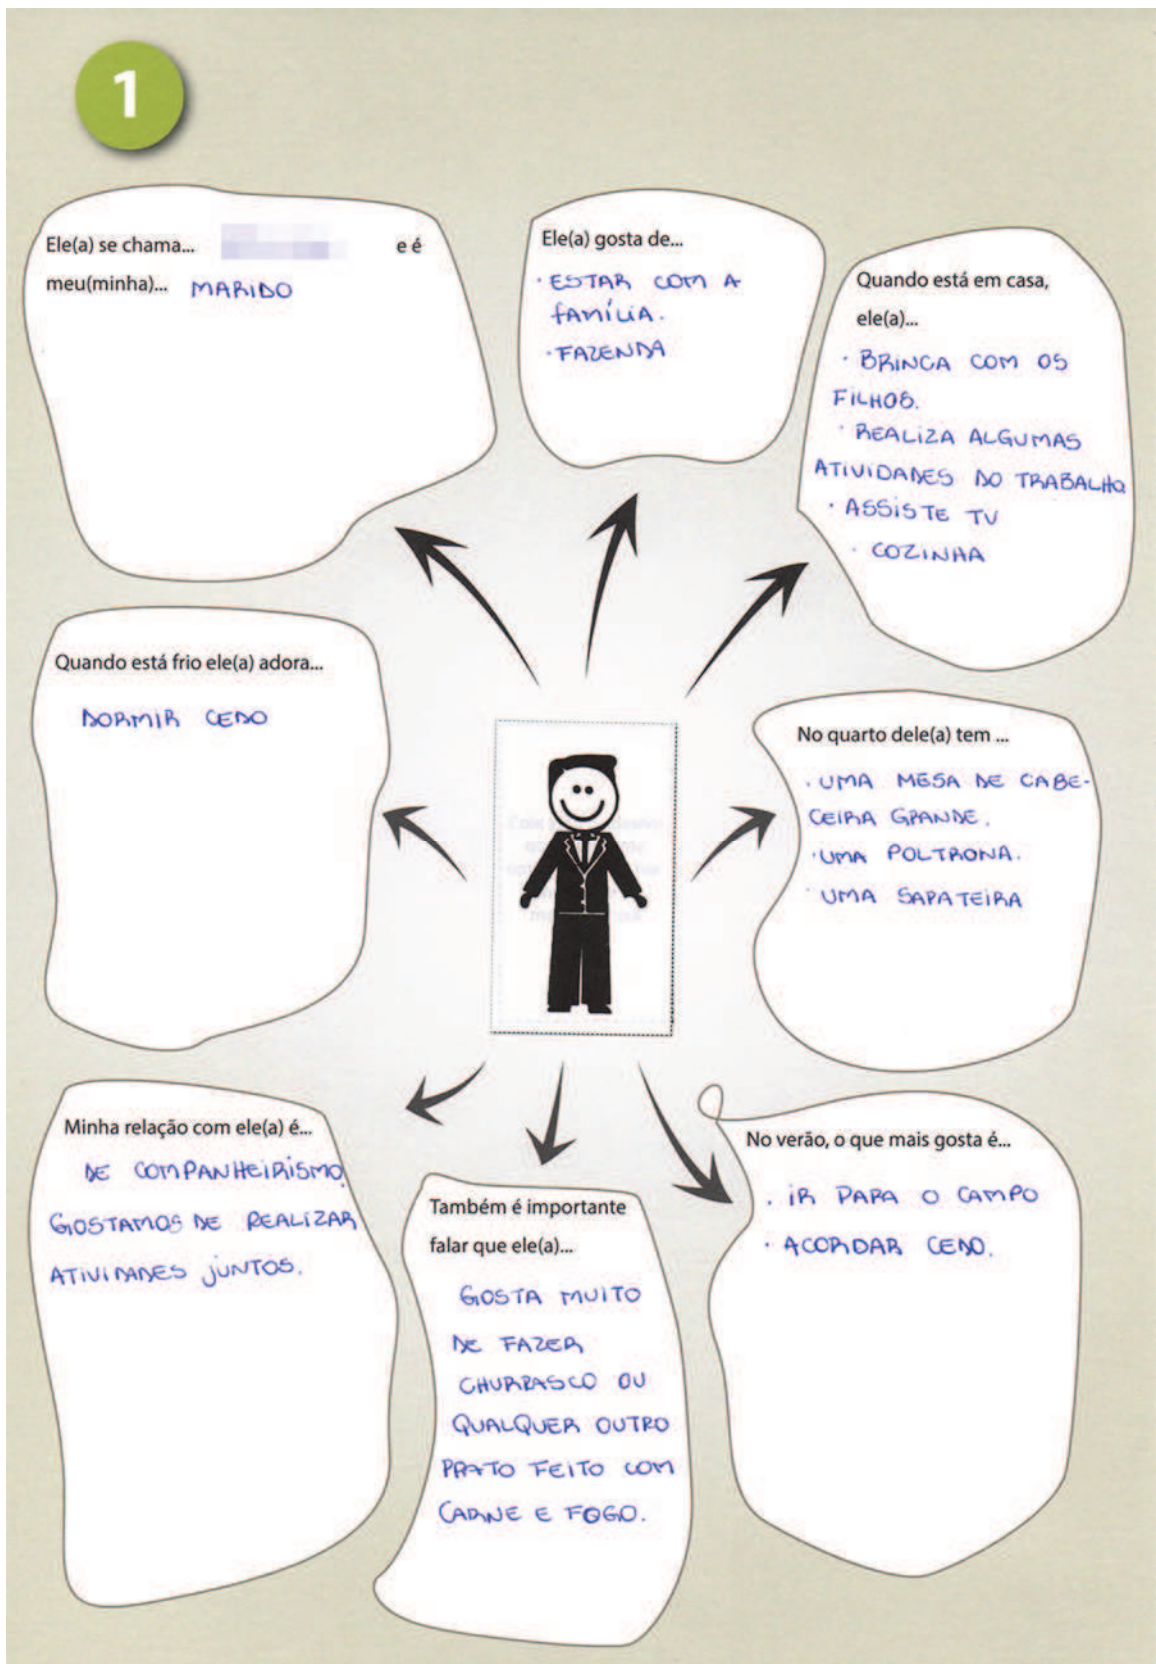 1
Ele(a) se chama... e é
meu(minha)... MARIDO
Ele(a) gosta de...
· ESTAR COM A
FAMÍLIA.
· FAZENDA
Quando está em casa,
ele(a)...
· BRINCA COM OS
FILHOS.
· REALIZA ALGUMAS
ATIVIDADES DO TRABALHO
· ASSISTE TV
· COZINHA
Quando está frio ele(a) adora...
DORMIR CEDO
No quarto dele(a) tem ...
· UMA MESA DE CABE-
CEIRA GRANDE.
· UMA POLTRONA.
· UMA SAPATEIRA
Minha relação com ele(a) é...
DE COMPANHEIRISMO.
GOSTAMOS DE REALIZAR
ATIVIDADES JUNTOS.
Também é importante
falar que ele(a)...
GOSTA MUITO
DE FAZER
CHURRASCO OU
QUALQUER OUTRO
PRATO FEITO COM
CARNE E FOGO.
No verão, o que mais gosta é...
· IR PARA O CAMPO
· ACORDAR CEDO.